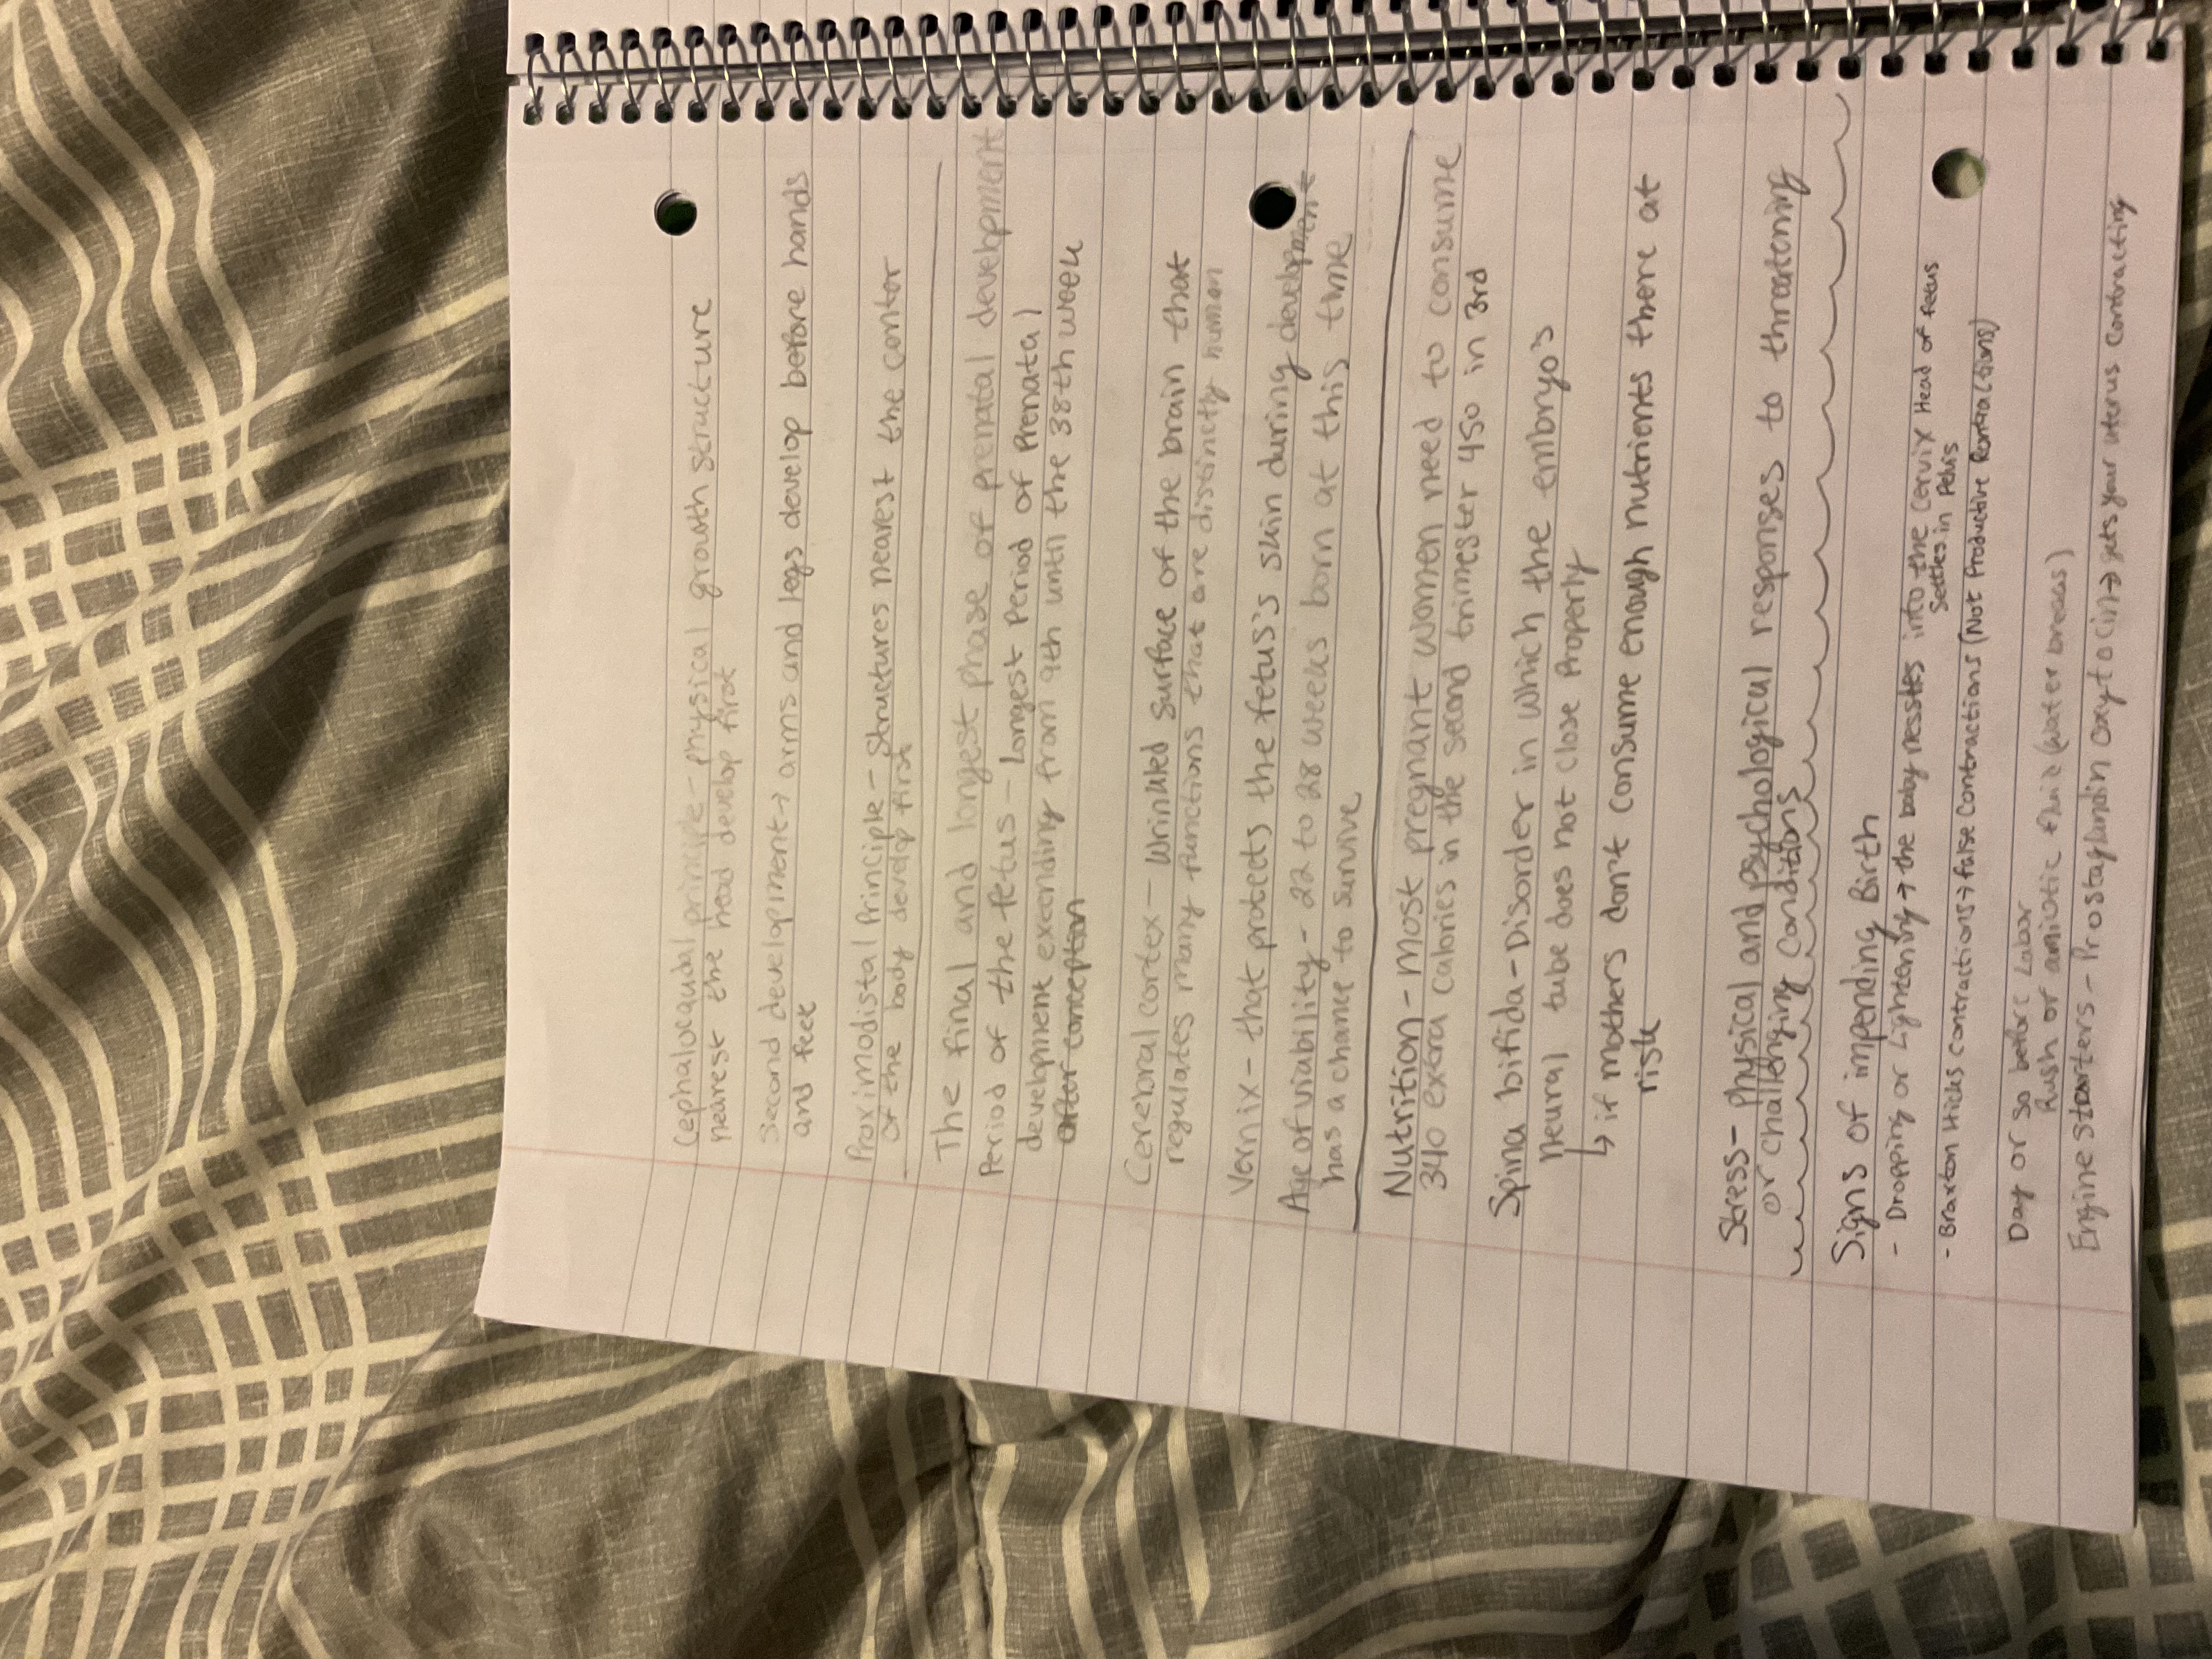 Cephalocaudal principle - physical growth structure
nearest the head develop first
Second development → arms and legs develop before hands
and feet
Proximodistal Principle - Structures nearest the contor
of the body develop first
The final and longest phase of prenatal development
Period of the fetus - Longest Period of Prenatal
development exconding from 9th until the 38th week
after conception
Cerebral cortex - Wrinkled Surface of the brain that
regulates many functions that are distinctly human
Vernix - that protects the fetus's skin during development
Age of viability - 22 to 28 weeks born at this time
has a chance to survive
Nutrition - Most pregnant women need to consume
340 extra calories in the second trimester 450 in 3rd
Spina bifida - Disorder in which the embryo's
neural tube does not close Properly
↳ if mothers don't consume enough nutrients there at
risk
Stress - Physical and psychological responses to threatening
or challenging conditions
Signs of impending Birth
- Dropping or Lightening → the baby nesstes into the cervix Head of fetus
Settles in Pelvis
- Braxton Hicks contractions → false contractions (Not Productive Contractions)
Day or so before Labor
Rush of amiotic fluid (water breaks)
Engine starters - Prostaglandin oxytocin → gets your uterus contracting